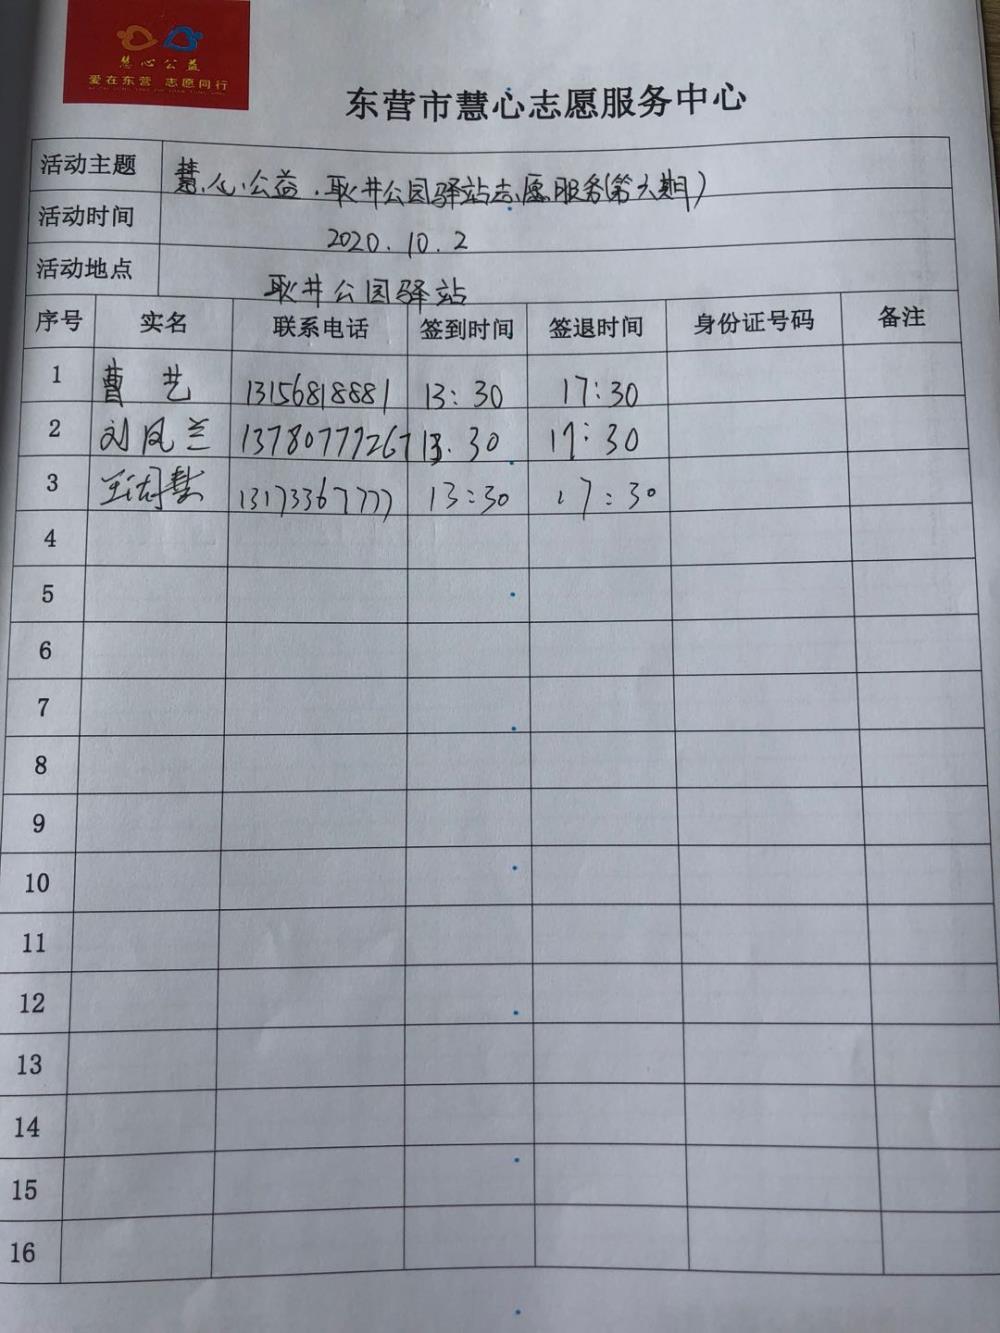 慧心公益
爱在东营 志愿同行
东营市慧心志愿服务中心
活动主题 慧心公益.耿井公园驿站志愿服务(第六期)
活动时间 2020.10.2
活动地点 耿井公园驿站
序号 实名 联系电话 签到时间 签退时间 身份证号码 备注
1 曹艺 13156818881 13:30 17:30
2 刘凤兰 13780777267 13:30 17:30
3 13173367777 13:30 17:30
4
5
6
7
8
9
10
11
12
13
14
15
16